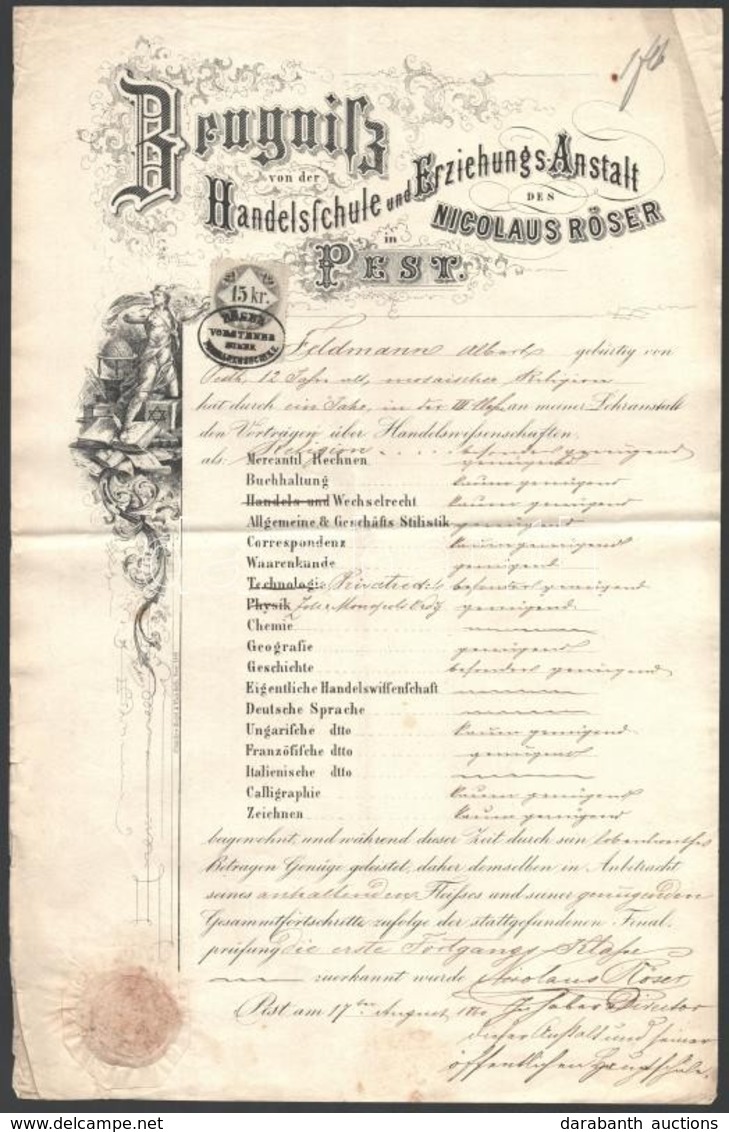 Zeugniſz
von der
Handelsſchule und Erziehungs-Anstalt
DES
NICOLAUS RÖSER
in
PEST.
15 kr.
RÖSER
VORSTEHER
EINER
HANDELSSCHULE
Feldmann Albert gebürtig von
Pesth, 12 Jahr alt, mosaischer Religion
hat durch ein Jahr, in der III Classe an meiner Lehranstalt
den Vorträgen über Handelswissenschaften,
Religion besonders genügend
als: Mercantil Rechnen genügend
Buchhaltung kaum genügend
Handels und Wechselrecht kaum genügend
Allgemeine & Geschäfts Stilistik genügend
Correspondenz kaum genügend
Waarenkunde genügend
Technologie besonders genügend
Physik Zoll & Monopols Ordg genügend
Chemie
Geografie genügend
Geschichte besonders genügend
Eigentliche Handelswiſſenſchaft
Deutsche Sprache
Ungariſche dtto kaum genügend
Französiſche dtto genügend
Italienische dtto
Calligraphie kaum genügend
Zeichnen kaum genügend
beigewohnt, und während dieser Zeit durch sein lobenswerthes
Betragen Genüge geleistet, daher demselben in Anbetracht
seines anhaltenden Fleiſses und seiner genügenden
Gesammtfortschritte zufolge der stattgefundenen Final-
prüfung die erste Fortgangs Klaſse
zuerkannt wurde Nicolaus Röser
Pest am 17ten August Inhaber Director
dieser Anstalt und seiner
öffentlichen Hauptschule.
darabanth auctions